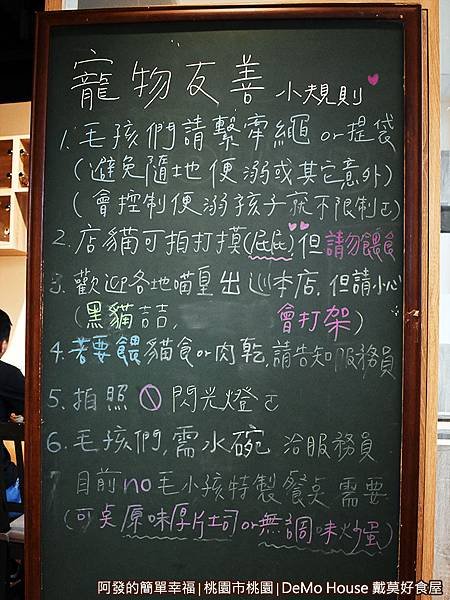 寵物友善 小規則
1. 毛孩們請繫牽繩 or 提袋
(避免隨地便溺或其它意外)
(會控制便溺孩子就不限制)
2. 店貓可拍打摸(屁屁)但請勿餵食
3. 歡迎各地喵皇出巡本店, 但請小心
(黑貓喆喆, 會打架)
4. 若要餵貓食 or 肉乾, 請告知服務員
5. 拍照 閃光燈
6. 毛孩們, 需水碗 洽服務員
7 目前 no 毛小孩特製餐點 需要
(可點原味厚片吐司 or 無調味炒蛋)
阿發的簡單幸福|桃園市桃園|DeMo House 戴莫好食屋